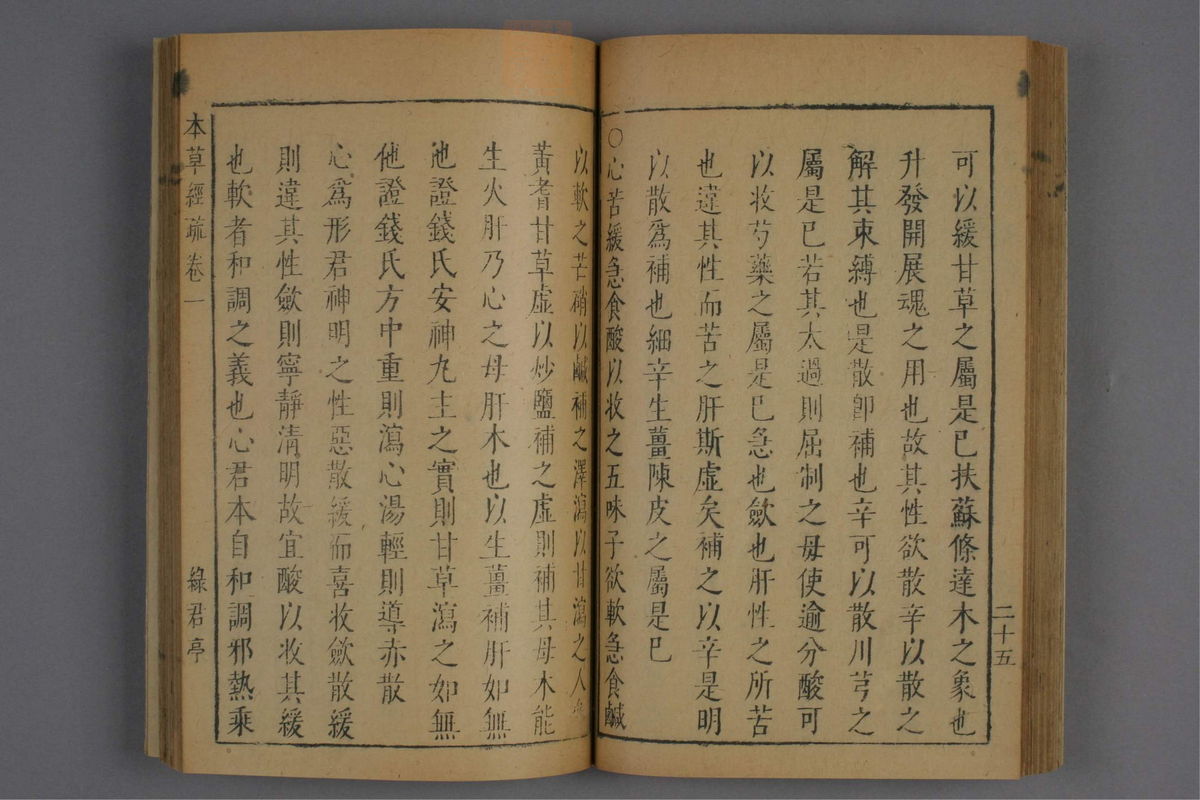 可以緩甘草之屬是已扶蘇條達木之象也
升發開展魂之用也故其性欲散辛以散之
解其束縛也是散卽補也辛可以散川芎之
屬是已若其太過則屈制之毋使逾分酸可
以收芍藥之屬是已急也斂也肝性之所苦
也違其性而苦之肝斯虛矣補之以辛是明
以散爲補也細辛生薑陳皮之屬是已
○心苦緩急食酸以收之五味子欲軟急食鹹
二十五
以軟之芒硝以鹹補之澤瀉以甘瀉之人
黃耆甘草虛以炒鹽補之虛則補其母木能
生火肝乃心之母肝木也以生薑補肝如無
他證錢氏安神丸主之實則甘草瀉之如無
他證錢氏方中重則瀉心湯輕則導赤散
心爲形君神明之性惡散緩而喜收斂散緩
則違其性斂則寧靜清明故宜酸以收其緩
也軟者和調之義也心君本自和調邪熱乘
本草經疏卷一
綠君亭